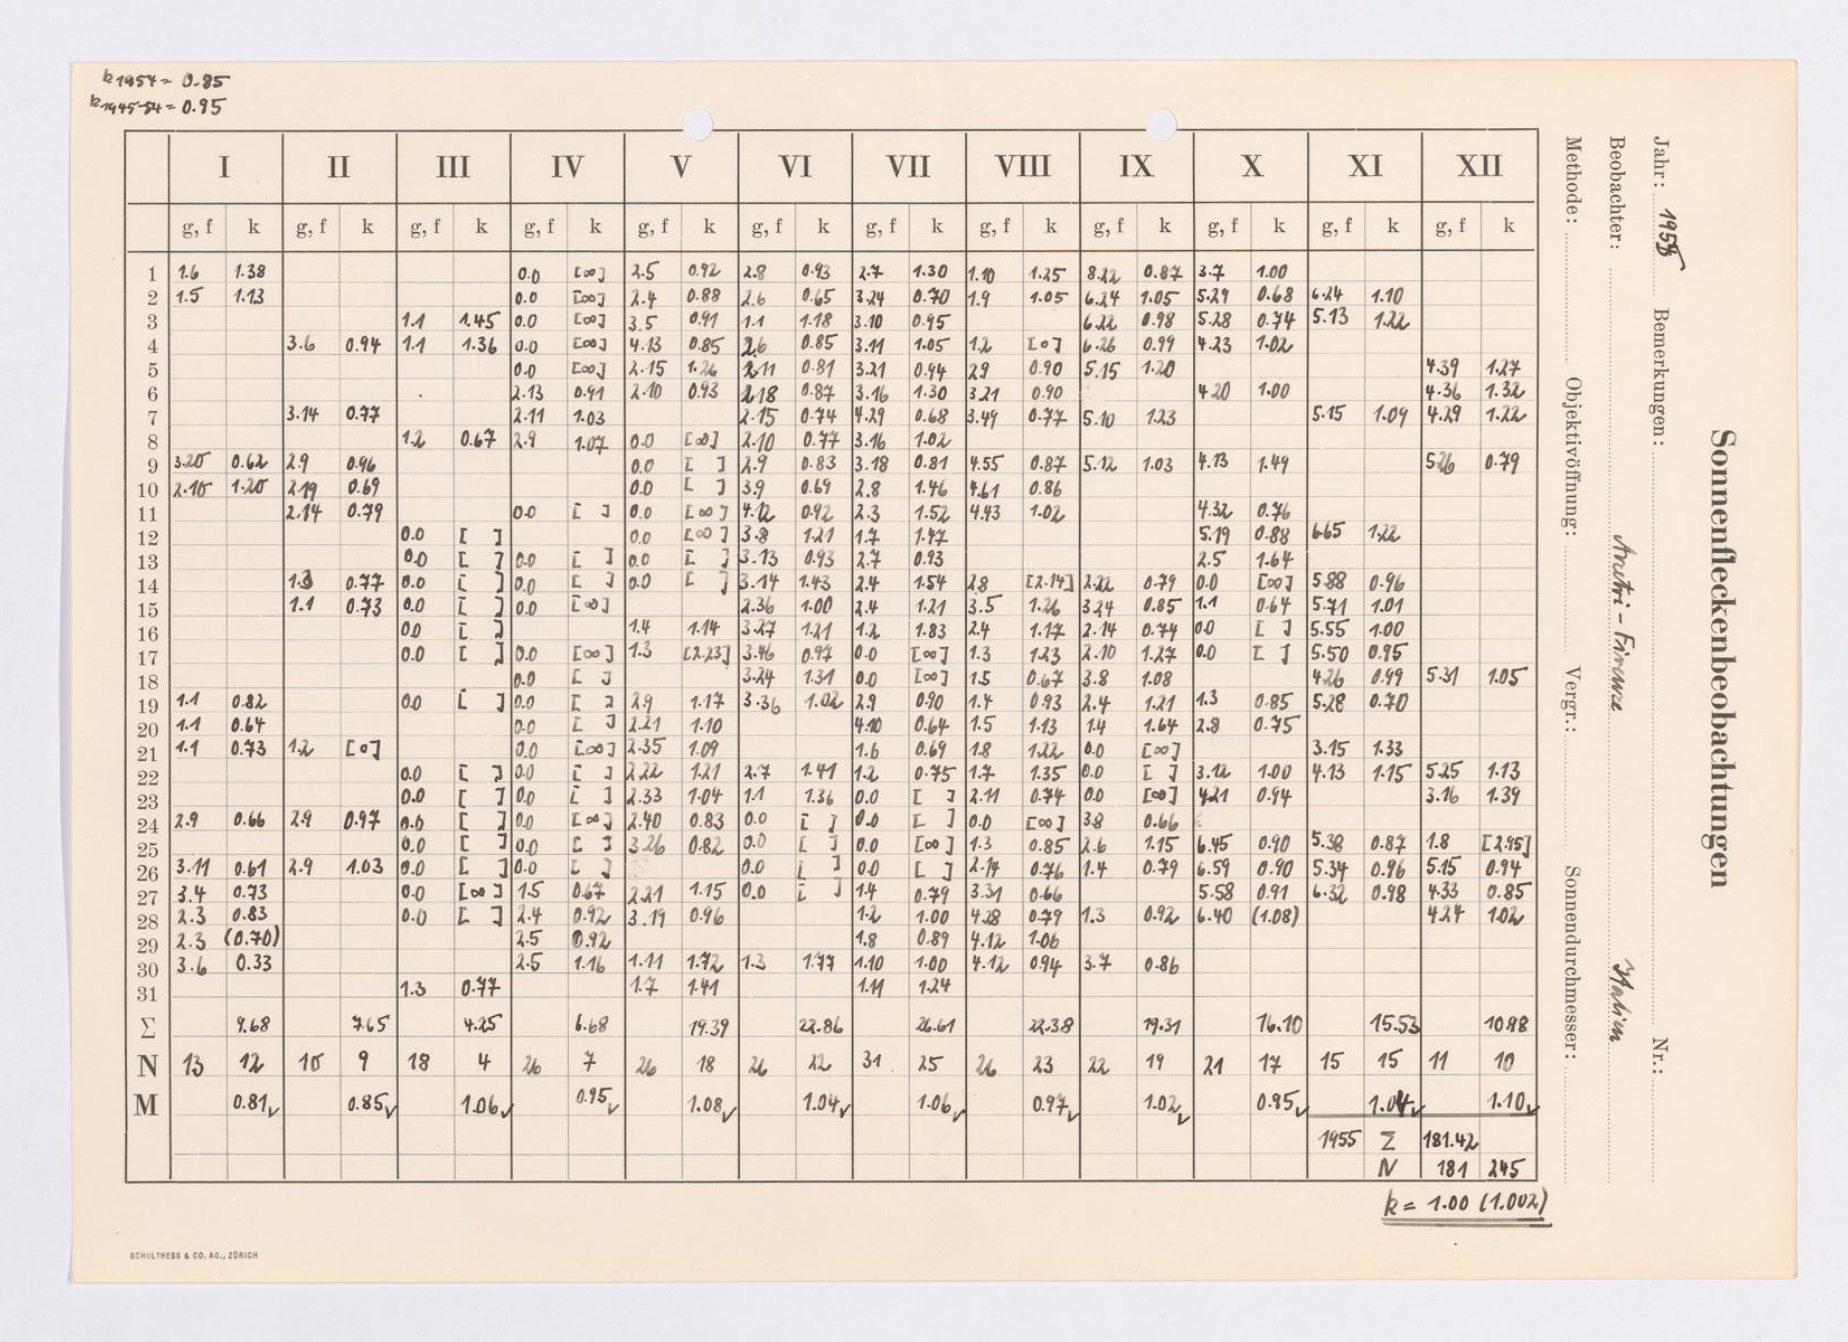 k1954 = 0.85
k1945-54 = 0.95
I II III IV V VI VII VIII IX X XI XII
g, f k g, f k g, f k g, f k g, f k g, f k g, f k g, f k g, f k g, f k g, f k g, f k
1 1.6 1.38 0.0 [∞] 2.5 0.92 2.8 0.93 2.7 1.30 1.10 1.25 8.22 0.87 3.7 1.00
2 1.5 1.13 0.0 [∞] 2.4 0.88 2.6 0.65 3.24 0.70 1.9 1.05 6.24 1.05 5.29 0.68 6.24 1.10
3 1.1 1.45 0.0 [∞] 3.5 0.91 1.1 1.18 3.10 0.95 6.22 0.98 5.28 0.74 5.13 1.22
4 3.6 0.94 1.1 1.36 0.0 [∞] 4.13 0.85 2.6 0.85 3.11 1.05 1.2 [0] 6.26 0.99 4.23 1.02
5 0.0 [∞] 2.15 1.26 2.11 0.81 3.21 0.94 2.9 0.90 5.15 1.20 4.39 1.27
6 2.13 0.91 2.10 0.93 2.18 0.87 3.16 1.30 3.21 0.90 4.20 1.00 4.36 1.32
7 3.14 0.77 2.11 1.03 2.15 0.74 4.29 0.68 3.49 0.77 5.10 1.23 5.15 1.09 4.29 1.22
8 1.2 0.67 2.9 1.07 0.0 [∞] 2.10 0.77 3.16 1.02
9 3.20 0.62 2.9 0.96 0.0 [ ] 2.9 0.83 3.18 0.81 4.55 0.87 5.12 1.03 4.13 1.49 5.26 0.79
10 2.10 1.20 2.19 0.69 0.0 [ ] 3.9 0.69 2.8 1.46 4.61 0.86
11 2.14 0.79 0.0 [ ] 0.0 [∞] 4.12 0.92 2.3 1.52 4.43 1.02 4.32 0.76
12 0.0 [ ] 0.0 [∞] 3.8 1.21 1.7 1.47 5.19 0.88 6.65 1.22
13 0.0 [ ] 0.0 [ ] 0.0 [ ] 3.13 0.93 2.7 0.93 2.5 1.64
14 1.3 0.77 0.0 [ ] 0.0 [ ] 0.0 [ ] 3.14 1.43 2.4 1.54 2.8 [2.14] 2.22 0.79 0.0 [∞] 5.88 0.96
15 1.1 0.73 0.0 [ ] 0.0 [∞] 2.36 1.00 2.4 1.21 3.5 1.26 3.24 0.85 1.1 0.64 5.71 1.01
16 0.0 [ ] 1.4 1.14 3.27 1.21 1.2 1.83 2.4 1.17 2.14 0.74 0.0 [ ] 5.55 1.00
17 0.0 [ ] 0.0 [∞] 1.3 [2.23] 3.46 0.97 0.0 [∞] 1.3 1.23 2.10 1.27 0.0 [ ] 5.50 0.95
18 0.0 [ ] 3.24 1.31 0.0 [∞] 1.5 0.67 3.8 1.08 4.26 0.99 5.31 1.05
19 1.1 0.82 0.0 [ ] 0.0 [ ] 2.9 1.17 3.36 1.02 2.9 0.90 1.4 0.93 2.4 1.21 1.3 0.85 5.28 0.70
20 1.1 0.64 0.0 [ ] 2.21 1.10 4.10 0.64 1.5 1.13 1.4 1.64 2.8 0.75
21 1.1 0.73 1.2 [0] 0.0 [∞] 2.35 1.09 1.6 0.69 1.8 1.22 0.0 [∞] 3.15 1.33
22 0.0 [ ] 0.0 [ ] 2.22 1.21 2.7 1.41 1.2 0.75 1.7 1.35 0.0 [ ] 3.12 1.00 4.13 1.15 5.25 1.13
23 0.0 [ ] 0.0 [ ] 2.33 1.04 1.1 1.36 0.0 [ ] 2.11 0.74 0.0 [∞] 4.21 0.94 3.16 1.39
24 2.9 0.66 2.9 0.97 0.0 [ ] 0.0 [∞] 2.40 0.83 0.0 [ ] 0.0 [ ] 0.0 [∞] 3.8 0.66
25 0.0 [ ] 0.0 [ ] 3.26 0.82 0.0 [ ] 0.0 [∞] 1.3 0.85 2.6 1.15 6.45 0.90 5.38 0.87 1.8 [2.95]
26 3.11 0.61 2.9 1.03 0.0 [ ] 0.0 [ ] 0.0 [ ] 0.0 [ ] 2.14 0.76 1.4 0.79 6.59 0.90 5.34 0.96 5.15 0.94
27 3.4 0.73 0.0 [∞] 1.5 0.67 2.21 1.15 0.0 [ ] 1.4 0.79 3.31 0.66 5.58 0.91 6.32 0.98 4.33 0.85
28 2.3 0.83 0.0 [ ] 2.4 0.92 3.19 0.96 1.2 1.00 4.28 0.79 1.3 0.92 6.40 (1.08) 4.24 1.02
29 2.3 (0.70) 2.5 0.92 1.8 0.89 4.12 1.06
30 3.6 0.33 2.5 1.16 1.11 1.72 1.3 1.77 1.10 1.00 4.12 0.94 3.7 0.86
31 1.3 0.77 1.7 1.41 1.11 1.24
Σ 9.68 7.65 4.25 6.68 19.39 22.86 26.61 22.38 19.31 16.10 15.53 10.98
N 13 12 10 9 18 4 26 7 26 18 26 22 31 25 26 23 22 19 21 17 15 15 11 10
M 0.81 0.85 1.06 0.95 1.08 1.04 1.06 0.97 1.02 0.95 1.04 1.10
1955 Σ 181.42
N 181 245
k = 1.00 (1.002)
SCHULTHESS & CO. AG., ZÜRICH
Sonnenfleckenbeobachtungen
Jahr: 1955 Bemerkungen: Nr.:
Beobachter: Arcetri - Firenze Italien
Methode: Objektivöffnung: Vergr.: Sonnendurchmesser: